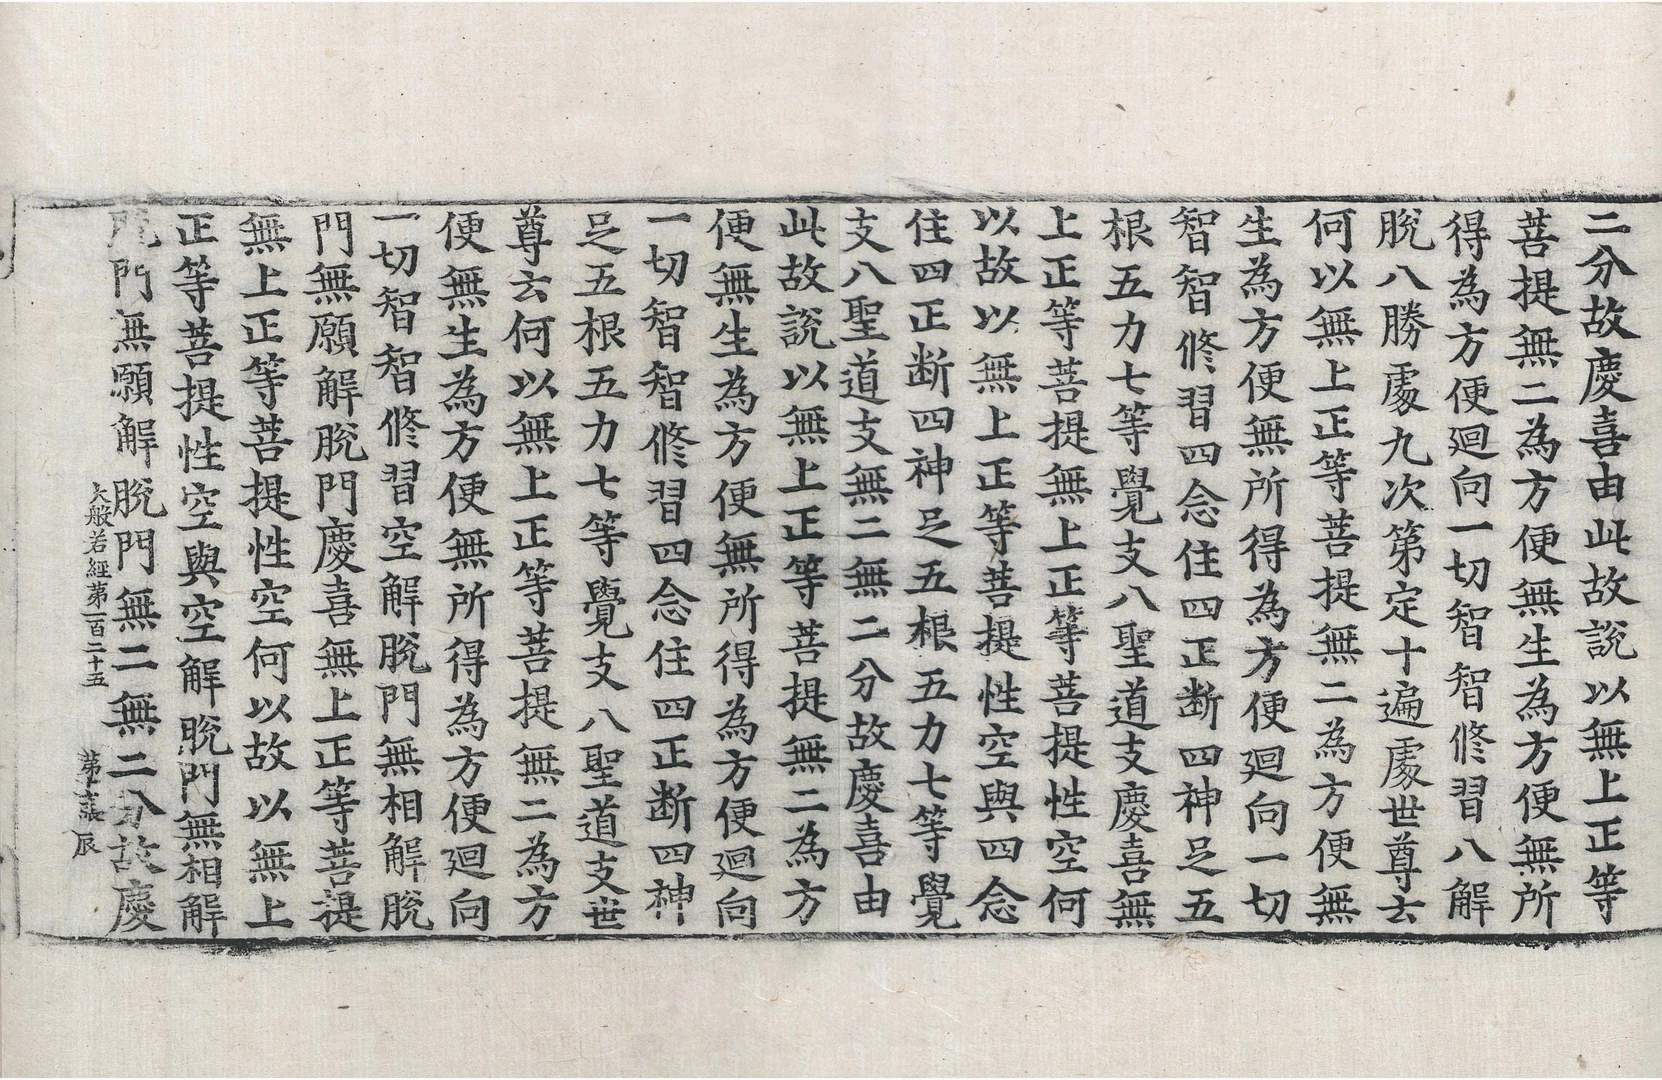 二分故慶喜由此故說以無上正等
菩提無二為方便無生為方便無所
得為方便廻向一切智智修習八解
脫八勝處九次第定十遍處世尊云
何以無上正等菩提無二為方便無
生為方便無所得為方便廻向一切
智智修習四念住四正断四神足五
根五力七等覺支八聖道支慶喜無
上正等菩提無上正等菩提性空何
以故以無上正等菩提性空與四念
住四正断四神足五根五力七等覺
支八聖道支無二無二分故慶喜由
此故說以無上正等菩提無二為方
便無生為方便無所得為方便廻向
一切智智修習四念住四正断四神
足五根五力七等覺支八聖道支世
尊云何以無上正等菩提無二為方
便無生為方便無所得為方便廻向
一切智智修習空解脫門無相解脫
門無願解脫門慶喜無上正等菩提
無上正等菩提性空何以故以無上
正等菩提性空與空解脫門無相解
脫門無願解脫門無二無二分故慶
大般若經第一百二十五 第 張 辰